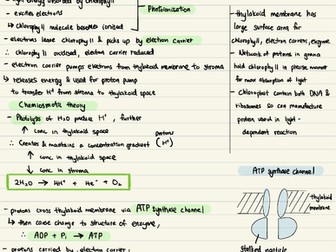 - light energy absorbed by chlorophyll
- excites electrons
↳ chlorophyll molecule becomes ionised
Photoionisation
- electrons leave chlorophyll & picks up by electron carrier
∴ chlorophyll oxidised, electron carrier reduced
- electron carrier pumps electrons from thylakoid membrane to stroma
↳ releases energy & used for proton pump
to transfer H⁺ from stroma to thylakoid space
Chemiosmotic theory:
- Photolysis of H₂O produce H⁺, further
↑ conc in thylakoid space
∴ Creates & maintains a concentration gradient
protons (H⁺)
↑ conc in thylakoid space
↓ conc in stroma
2H₂O → 4H⁺ + 4e⁻ + O₂
- protons cross thylakoid membrane via ATP synthase channel
↳ then cause change to structure of enzyme,
∴ ADP + Pi → ATP
- protons carried by electron carrier
- thylakoid membrane has
large surface area for
chlorophyll, electron carrier, enzyme
- Network of proteins in grana
hold chlorophyll in precise manner
for more absorption of light
- Chloroplast contain both DNA &
ribosomes so can manufacture
protein used in light-
dependent reaction
ATP synthase channel
thylakoid
membrane
Stalked particle